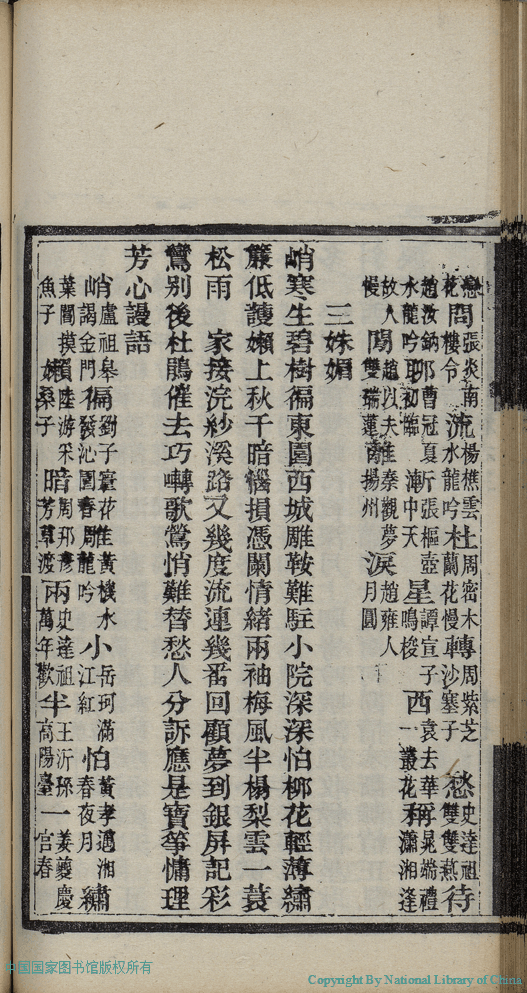 戀花 問 張炎南樓令 流 楊樵雲水龍吟 杜 周密木蘭花慢 轉 周紫芝沙塞子 愁 史達祖雙雙燕 待
趙汝鈉水龍吟 聊 曹冠夏初臨 漸 張樞壺中天 星 譚宣子鳴梭 西 袁去華一叢花 稱 晁端禮瀟湘逢
故人慢 陽 趙以夫雙瑞蓮 離 秦觀夢揚州 淚 趙雍人月圓
三姝媚
峭寒生碧樹徧東園西城雕鞍難駐小院深深怕柳花輕薄繡
簾低護嬾上秋千暗惱損憑闌情緒兩袖梅風半榻梨雲一蓑
松雨 家接浣紗溪路又幾度流連幾番回顧夢到銀屏記彩
鸞別後杜鵑催去巧囀歌鶯悄難替愁人分訴應是寶箏慵理
芳心謾語
峭 盧祖皋謁金門 徧 劉子寰沁園春 雕 黃機水龍吟 小 岳珂滿江紅 怕 黃孝邁湘春夜月 繡
葉閶摸魚子 嬾 陸游采桑子 暗 周邦彥芳草渡 兩 史達祖萬年歡 半 王沂孫高陽臺 一 姜夔慶宮春
中国国家图书馆版权所有
Copyright By National Library of China